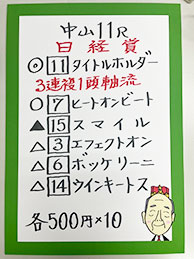 中山11R
日経賞
◎11タイトルホルダー
3連複1頭軸流
○7ヒートオンビート
▲15スマイル
△3エフェクトオン
△6ボッケリーニ
△14ウインキートス
各500円×10